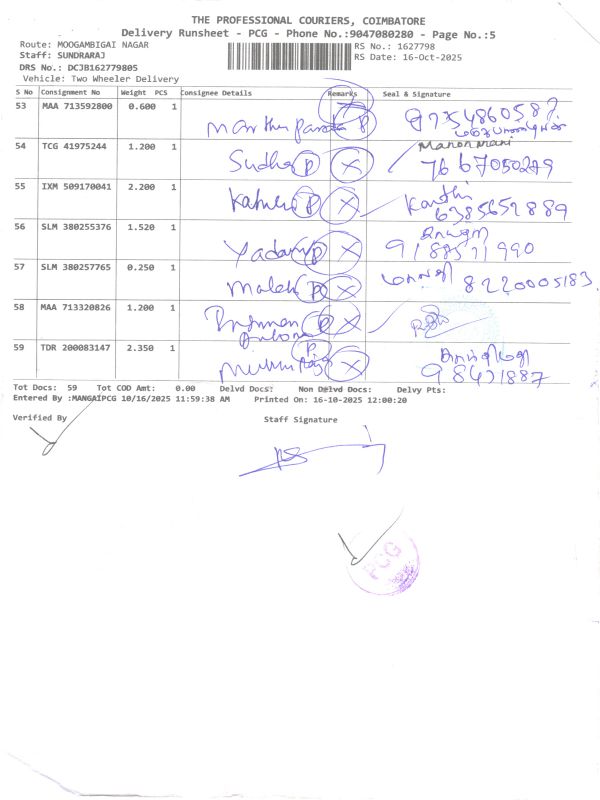 THE PROFESSIONAL COURIERS, COIMBATORE
Delivery Runsheet - PCG - Phone No.:9047080280 - Page No.:5
Route: MOOGAMBIGAI NAGAR
RS No.: 1627798
Staff: SUNDRARAJ
RS Date: 16-Oct-2025
DRS No.: DCJB162779805
Vehicle: Two Wheeler Delivery
S No Consignment No Weight PCS Consignee Details Remarks Seal & Signature
53 MAA 713592800 0.600 1 P
54 TCG 41975244 1.200 1 Sudha P X Manonmani
7667050279
55 IXM 509170041 2.200 1 P X Karthi
6385652889
56 SLM 380255376 1.520 1 P X
57 SLM 380257765 0.250 1 P X 8220005183
58 MAA 713320826 1.200 1 P X
59 TDR 200083147 2.350 1 P X
Tot Docs: 59 Tot COD Amt: 0.00 Delvd Docs: Non Delvd Docs: Delvy Pts:
Entered By :MANGAIPCG 10/16/2025 11:59:38 AM Printed On: 16-10-2025 12:00:20
Verified By Staff Signature
PCG